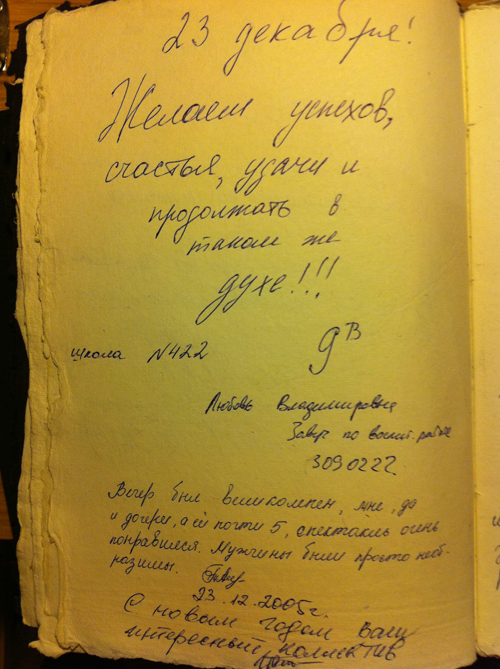 23 декабря!
Желаем успехов,
счастья, удачи и
продолжать в
таком же
духе!!!
школа N422 9В
Любовь Владимировна
Завуч по воспит. работе
3090222.
Вечер был великолепен, мне, да
и дочери, а ей почти 5, спектакль очень
понравился. Мужчины были просто неот-
разимы.
23.12.2005г.
С новым годом Ваш
интересный коллектив